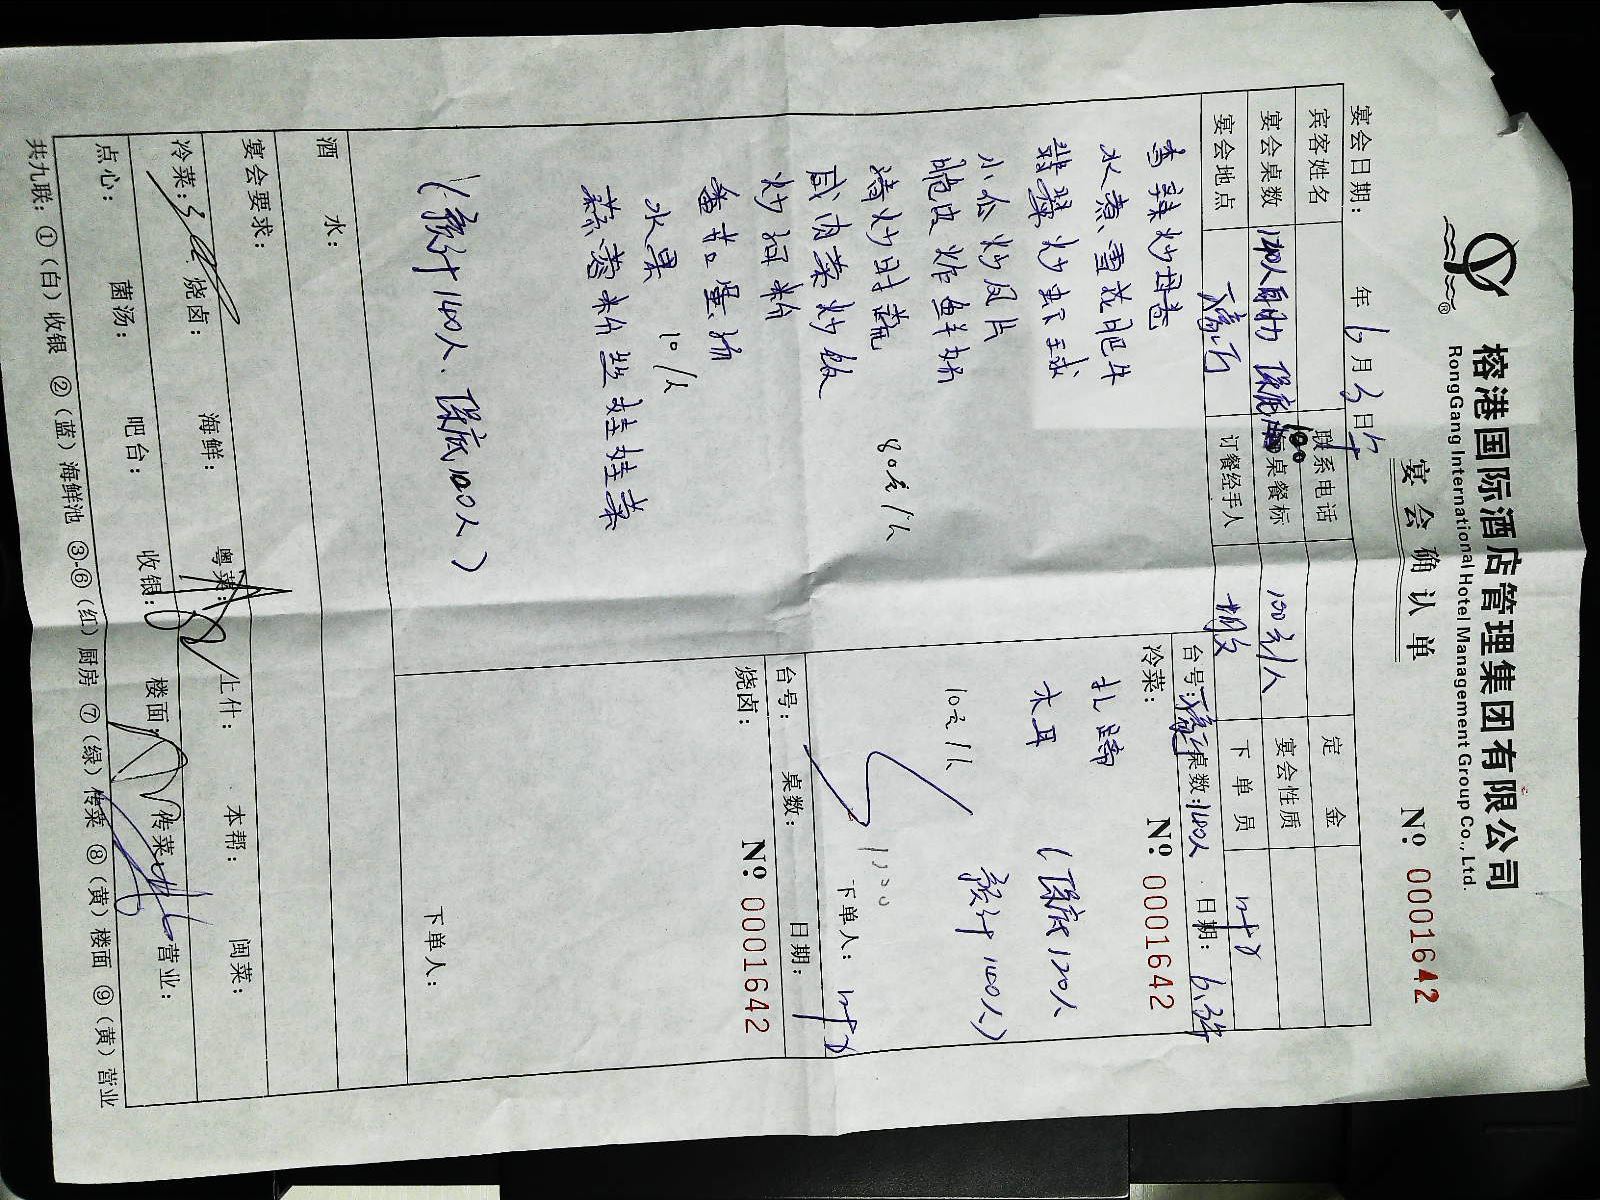 榕港国际酒店管理集团有限公司
RongGang International Hotel Management Group Co., Ltd.
宴会确认单
№ 0001642
宴会日期： 年 6 月 3 日
宾客姓名 联系电话 定金
宴会桌数 保底 100 每桌餐标 100元/人 宴会性质
宴会地点 订餐经手人 下单员
香辣炒母卷
水煮雪花肥牛
翡翠炒虾球
小瓜炒凤片
脆皮炸鲜奶
清炒时蔬
咸肉菜炒饭
炒河粉
80元/人
水果 10/人
蒜蓉粉丝娃娃菜
（预计140人、保底100人）
台号： 桌数：140人 日期：6.3
№ 0001642
冷菜：
扎蹄
木耳
10元/人
（保底120人
预计140人）
下单人：
台号： 桌数： 日期：
烧卤：
№ 0001642
下单人：
酒水：
宴会要求：
冷菜： 烧卤： 海鲜： 粤菜： 上什： 本帮： 闽菜：
点心： 菌汤： 吧台： 收银： 楼面： 传菜： 营业：
共九联：①（白）收银 ②（蓝）海鲜池 ③-⑥（红）厨房 ⑦（绿）传菜 ⑧（黄）楼面 ⑨（黄）营业